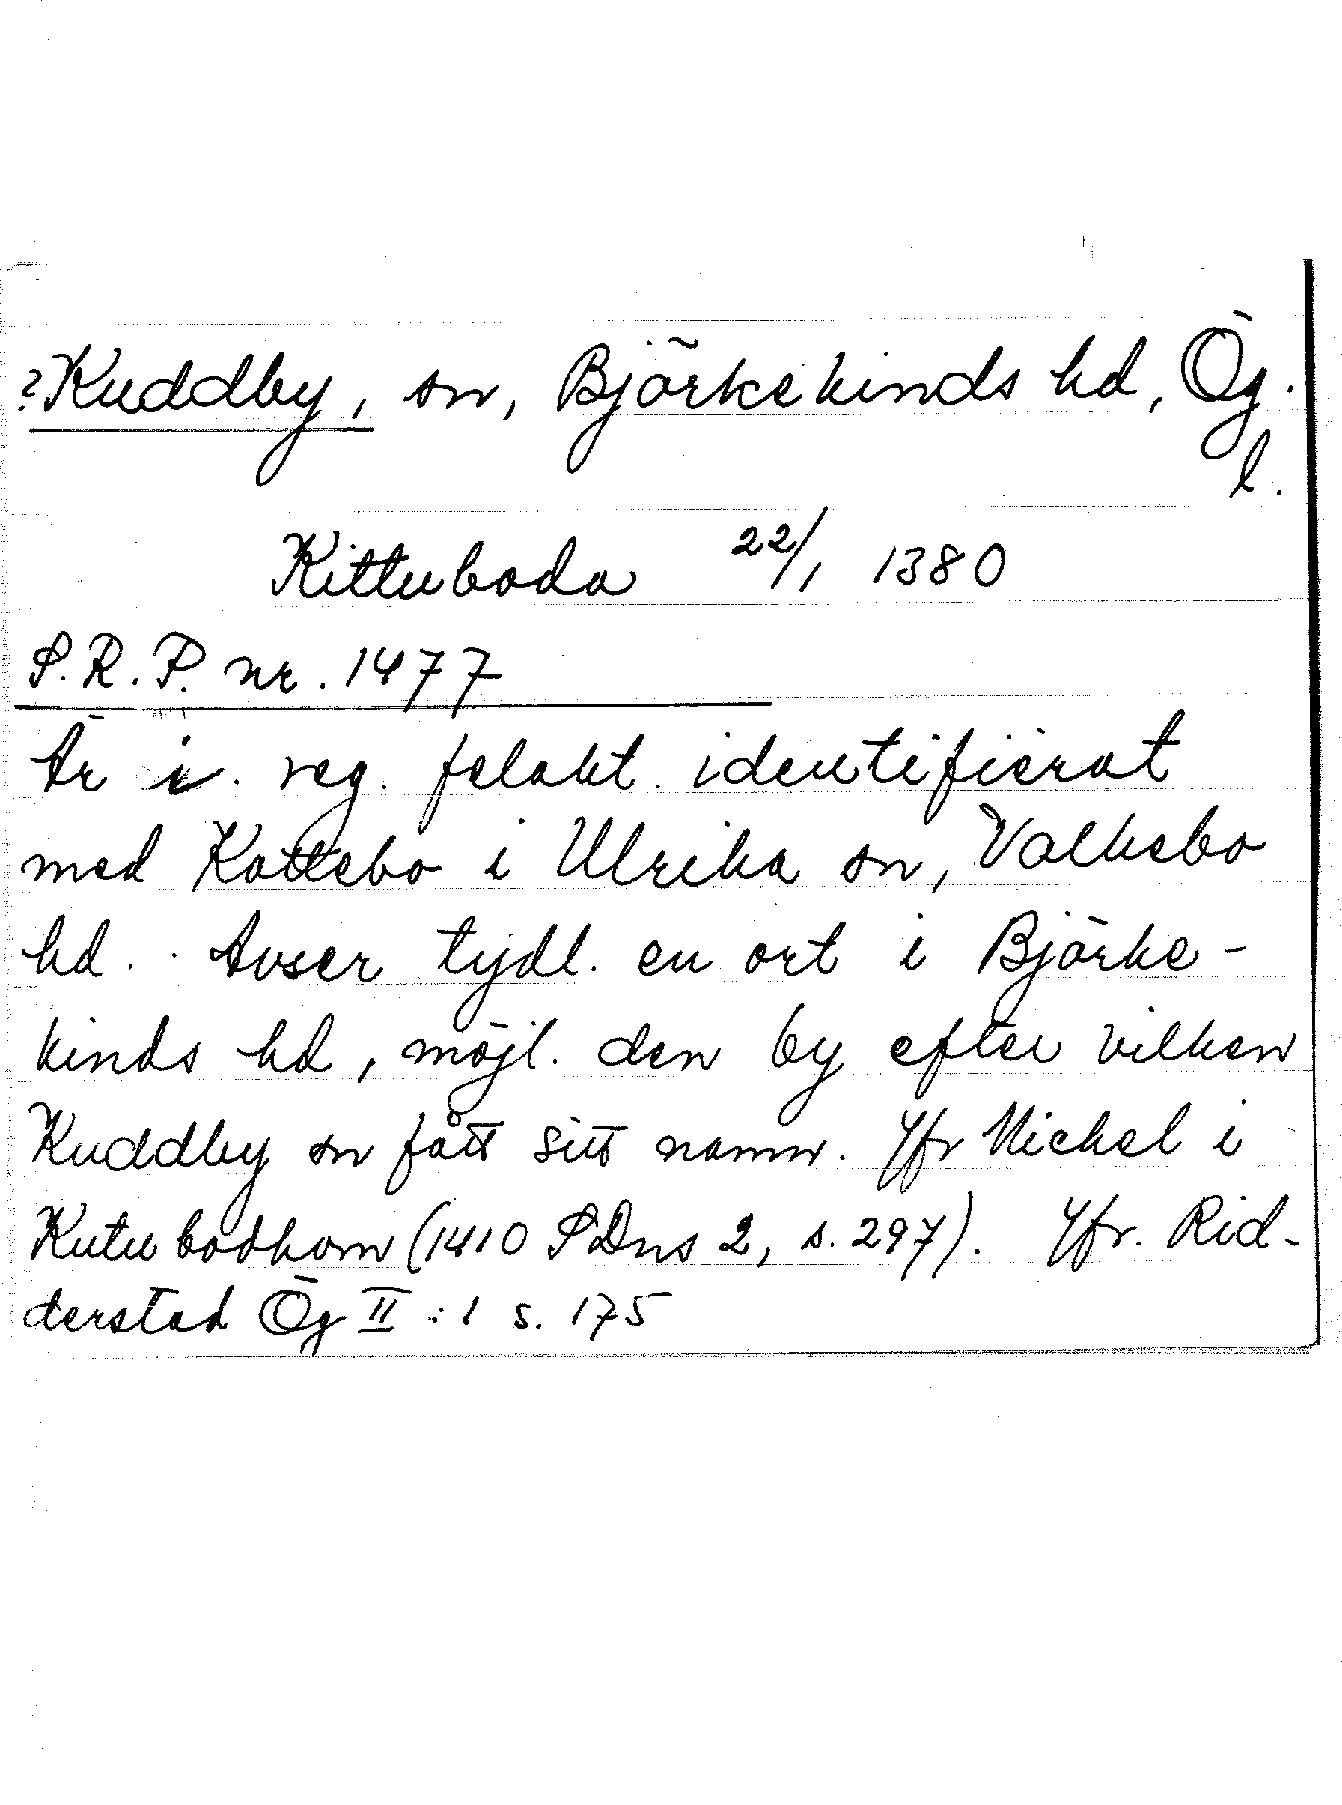 ?Kuddby, sn, Björkekinds hd, Ög.
l.
Kittuboda 22/1 1380
S.R.P. nr. 1477
Är i reg. felakt. identifierat
med Kottebo i Ulrika sn, Valkebo
hd. Avser tydl. en ort i Björke-
kinds hd, möjl. den by efter vilken
Kuddby sn fått sitt namn. Jfr Michel i
Kutubodhom (1410 SDns 2, s. 297). Jfr. Rid-
derstad Ög II:1 s. 175